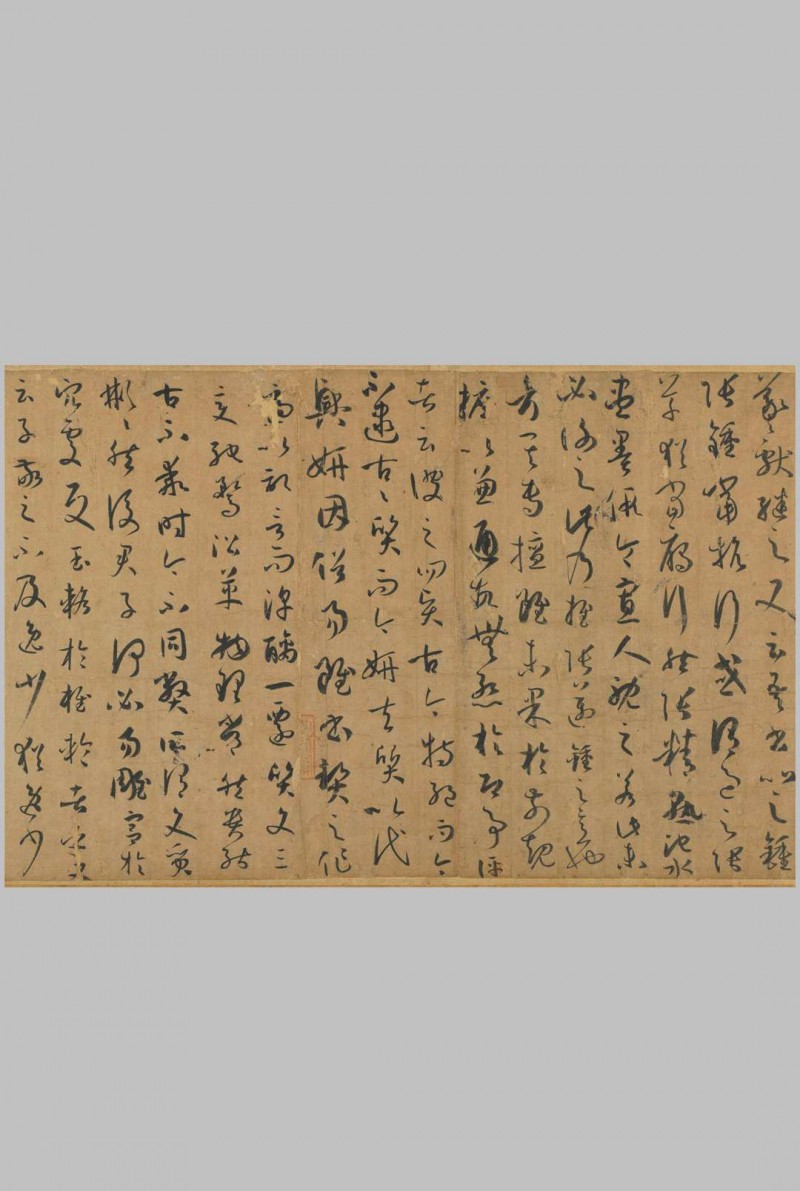 羲獻繼之又云吾書比之鍾
張鍾當抗行或謂過之張
草猶當鴈行然張精熟池水
盡墨假令寡人耽之若此未
必謝之此乃推張邁鍾之意也
考其專擅雖未果於前規
摭以兼通故無慙於即事評
者云彼之四賢古今特絕而今
不逮古古質而今妍夫質以代
興妍因俗易雖書契之作
適以記言而淳醨一遷質文三
變馳騖沿革物理常然貴能
古不乖時今不同弊所謂文質
彬彬然後君子何必易雕宮於
穴處反玉輅於椎輪者乎又
云子敬之不及逸少猶逸少